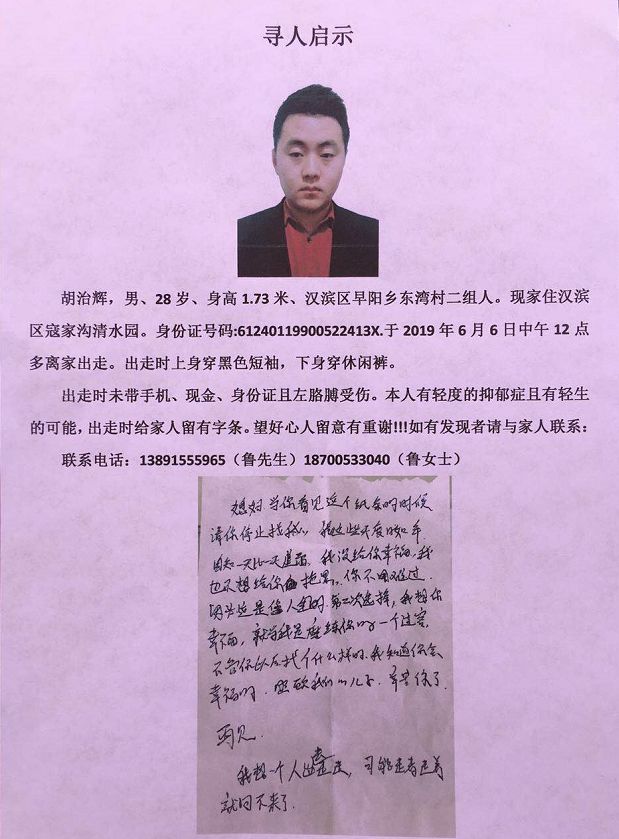 寻人启示
胡治辉，男、28 岁、身高 1.73 米、汉滨区早阳乡东湾村二组人。现家住汉滨
区寇家沟清水园。身份证号码:61240119900522413X.于 2019 年 6 月 6 日中午 12 点
多离家出走。出走时上身穿黑色短袖，下身穿休闲裤。
出走时未带手机、现金、身份证且左胳膊受伤。本人有轻度的抑郁症且有轻生
的可能，出走时给家人留有字条。望好心人留意有重谢!!!如有发现者请与家人联系：
联系电话：13891555965（鲁先生）18700533040（鲁女士）
媳妇 当你看见这个纸条的时候
请你停止找我。我这些天度日如年
一天比一天 我没给你幸福.我
也不想给你 拖累。你不用难过.
因为这是 人生的第二次选择,我想你
幸福, 就当我是 你的一个过客,
不管你以后找个什么样的.我知道你会
幸福的. 照顾我们的儿子. 辛苦你了.
再见.
我想一个人 走走, 可能走着走着
就回不来了.